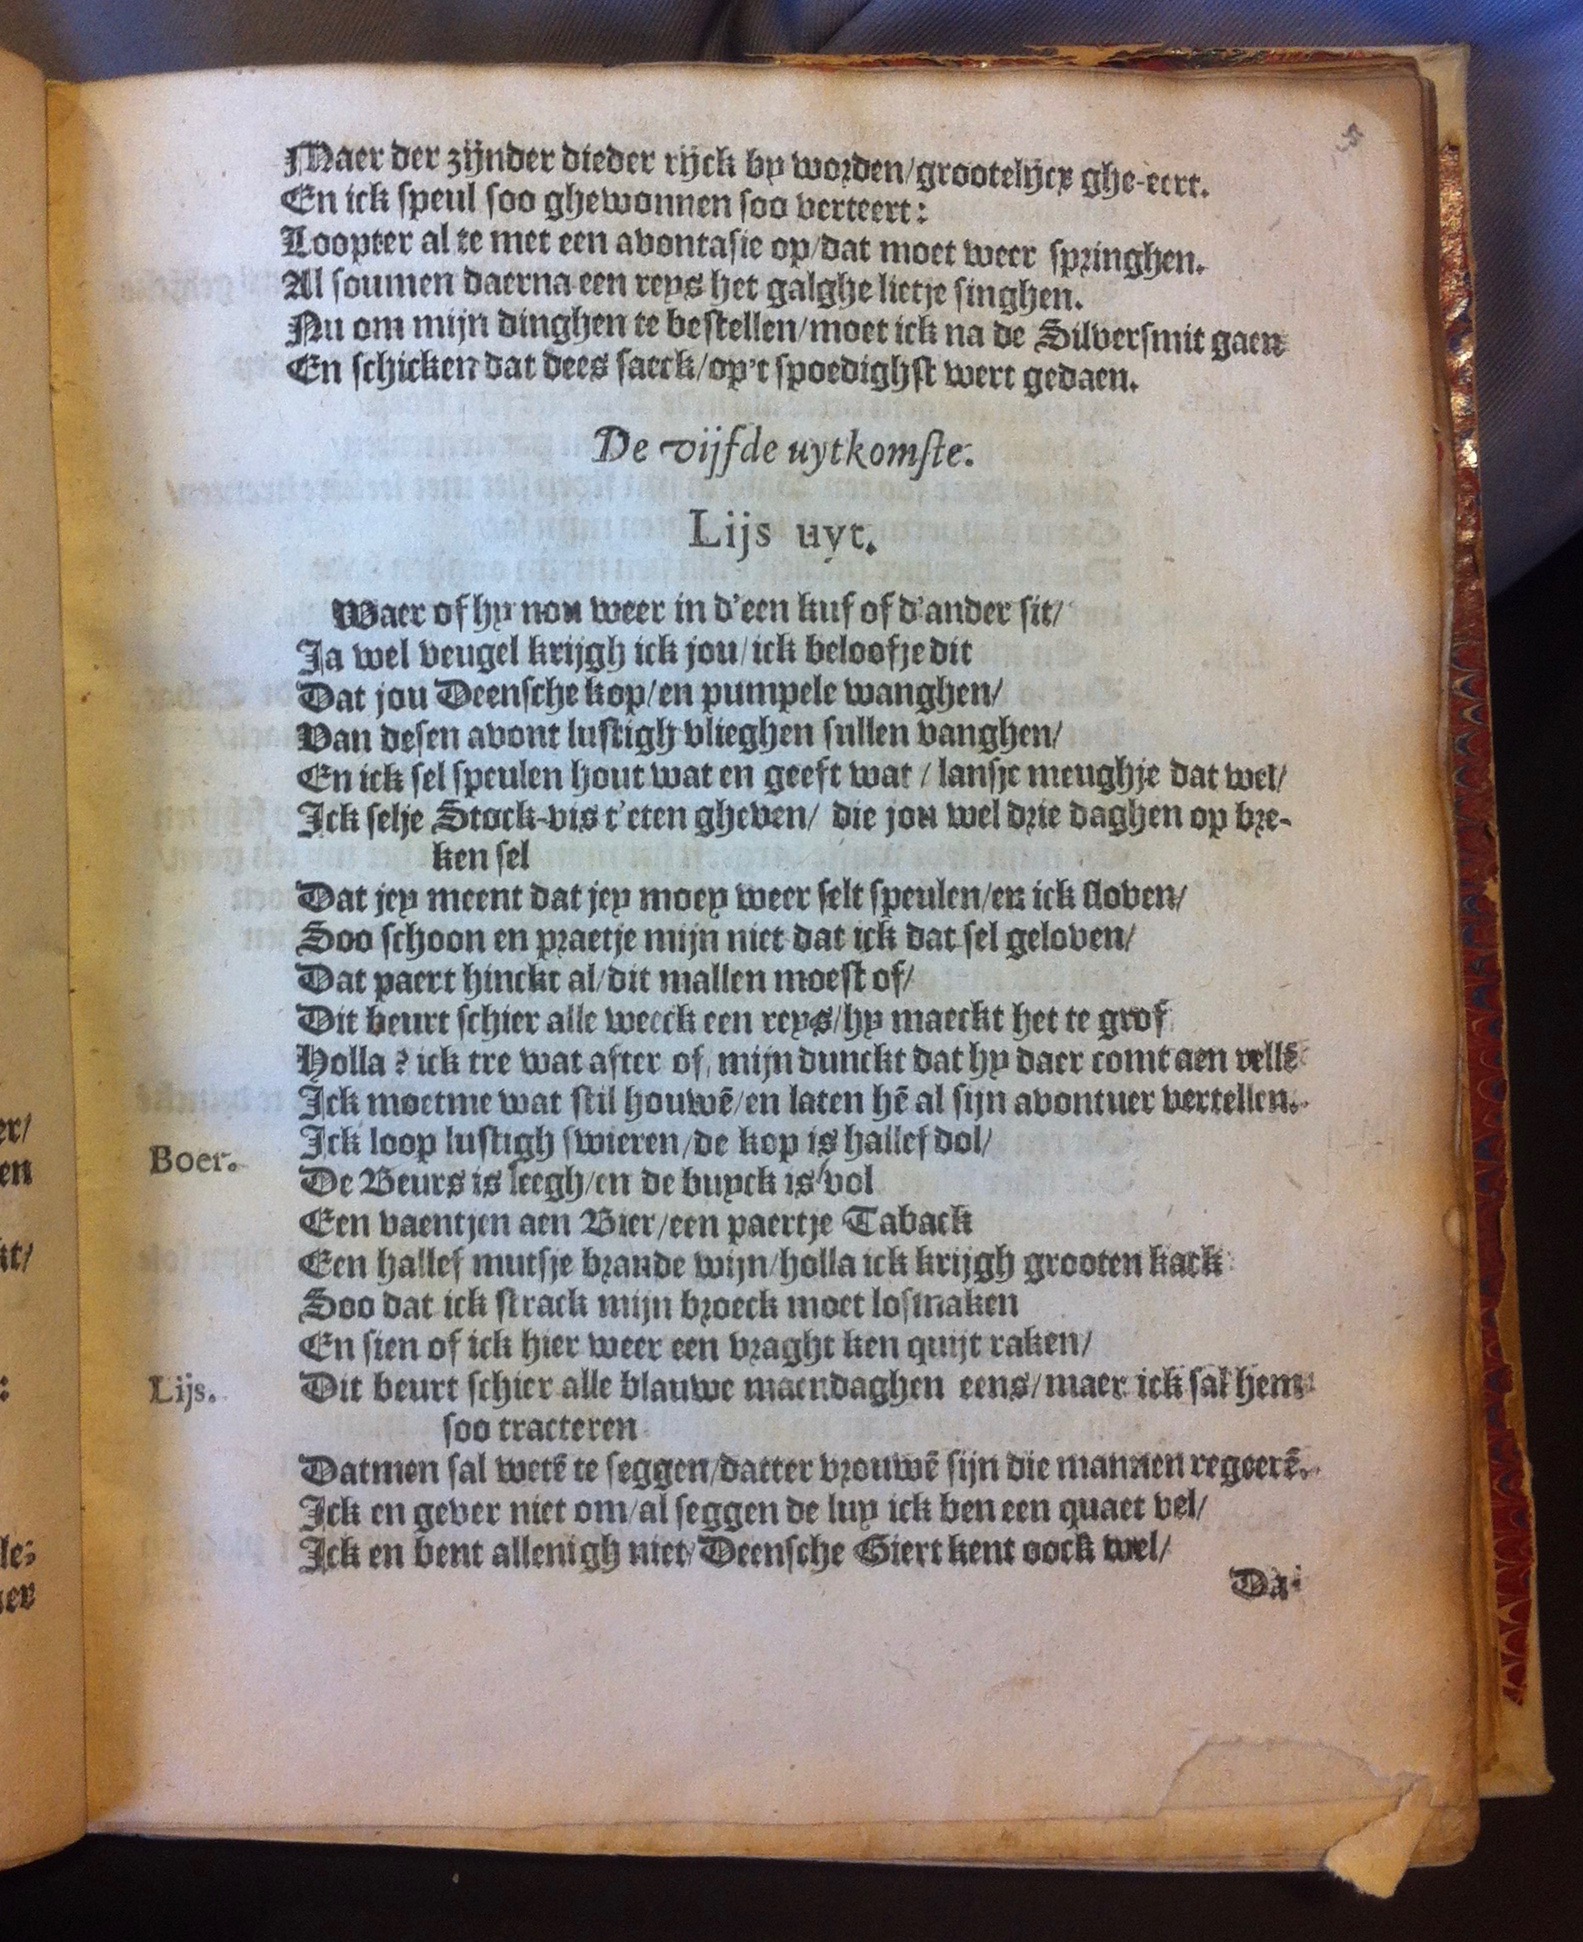 Maer der zijnder dieder rijck by worden/grootelijcx ghe-eert.
En ick speul soo ghewonnen soo verteert:
Loopter al te met een avontasie op/dat moet weer springhen.
Al soumen daerna een reys het galghe lietje singhen.
Nu om mijn dinghen te bestellen/moet ick na de Silversmit gaen
En schicken dat dees saeck/op't spoedighst wert gedaen.
De vijfde uytkomste.
Lijs uyt.
Waer of hy nou weer in d'een kuf of d'ander sit/
Ja wel veugel krijgh ick jou/ick beloofje dit
Dat jou Deensche kop/en pumpele wanghen/
Van desen avont lustigh vlieghen sullen vanghen/
En ick sel speulen hout wat en geeft wat/lansje meughje dat wel/
Ick selje Stock-vis t'eten gheven/ die jou wel drie daghen op bre-
ken sel
Dat jey meent dat jey moey weer selt speulen/en ick sloven/
Soo schoon en praetje mijn niet dat ick dat sel geloven/
Dat paert hinckt al/dit mallen moest of/
Dit beurt schier alle weeck een reys/hy maeckt het te grof
Holla? ick tre wat after of, mijn dunckt dat hy daer comt aen vellẽ
Ick moetme wat stil houwẽ/en laten hẽ al sijn avontuer vertellen.
Boer. Ick loop lustigh swieren/de kop is hallef dol/
De Beurs is leegh/en de buyck is vol
Een vaentjen aen Bier/een paertje Taback
Een hallef mutsje brande wijn/holla ick krijgh grooten kack
Soo dat ick strack mijn broeck moet losmaken
En sien of ick hier weer een vraght ken quijt raken/
Lijs. Dit beurt schier alle blauwe maendaghen eens/maer ick sal hem
soo tracteren
Datmen sal wetẽ te seggen/datter vrouwẽ sijn die mannen regeerẽ.
Ick en gever niet om/al seggen de luy ick ben een quaet vel/
Ick en bent allenigh niet/Deensche Giert kent oock wel/
Da
er/
en
kt/
:
le: